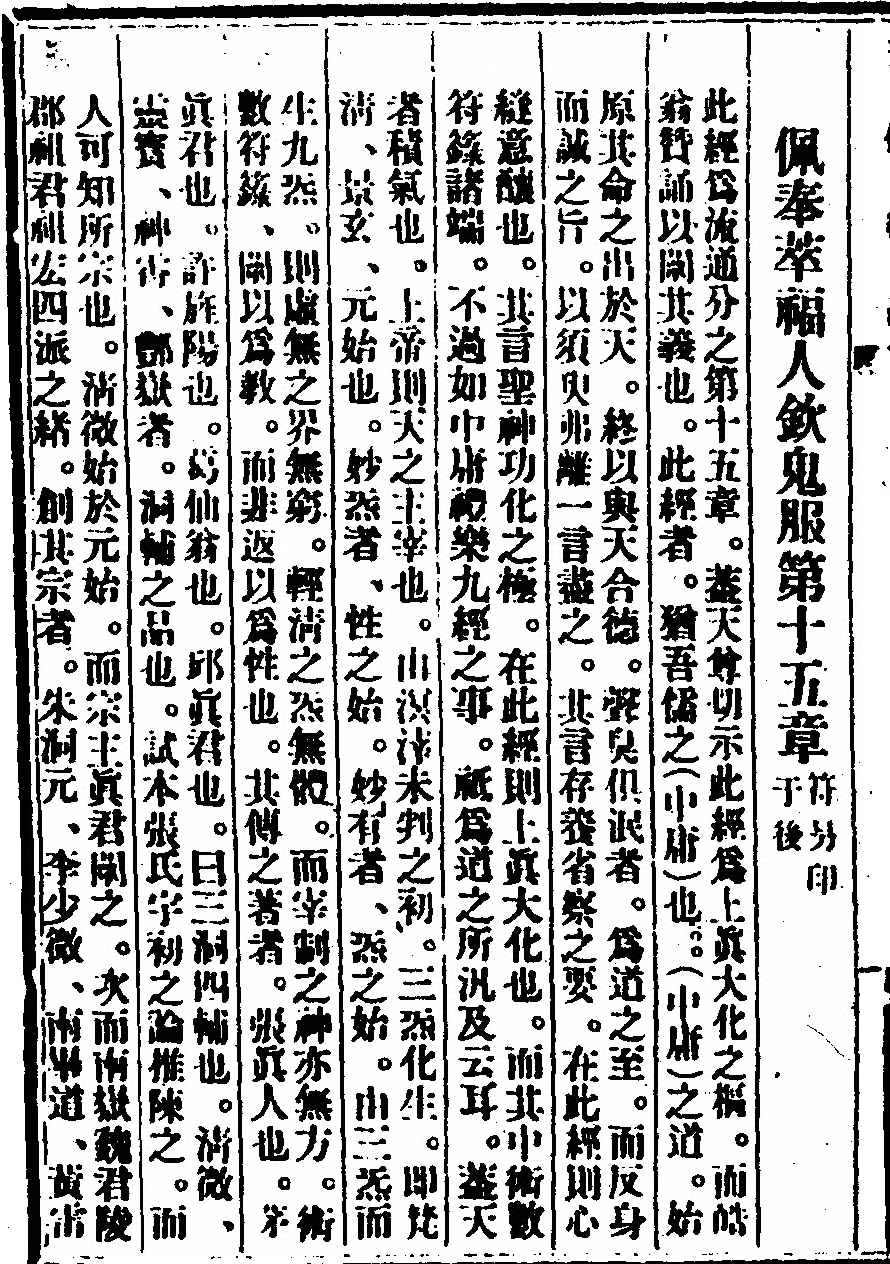 佩奉萃福人欽鬼服第十五章
符另印
于後
此經爲流通分之第十五章。蓋天尊切示此經爲上眞大化之樞。而皓
翁贊誦以闡其義也。此經者。猶吾儒之(中庸)也。(中庸)之道。始
原其命之出於天。終以與天合德。聲臭俱泯者。爲道之至。而反身
而誠之旨。以須臾弗離一言盡之。其言存養省察之要。在此經則心
縫意醮也。其言聖神功化之極。在此經則上眞大化也。而其中術數
符籙諸端。不過如中庸禮樂九經之事。祇爲道之所汎及云耳。蓋天
者積氣也。上帝則天之主宰也。由溟涬未判之初。三炁化生。即梵
清、景玄、元始也。妙炁者、性之始。妙有者、炁之始。由三炁而
生九炁。則虛無之界無窮。輕清之炁無體。而宰制之神亦無方。術
數符籙、闡以爲教。而非返以爲性也。其傳之著者。張眞人也。茅
眞君也。許旌陽也。葛仙翁也。邱眞君也。曰三洞四輔也。清微、
靈寶、神霄、酆嶽者。洞輔之品也。試本張氏宇初之論推陳之。而
人可知所宗也。清微始於元始。而宗主眞君闡之。次而南嶽魏君陵
郡祖君祖宏四派之緒。創其宗者。朱洞元、李少微、南畢道、黃雷